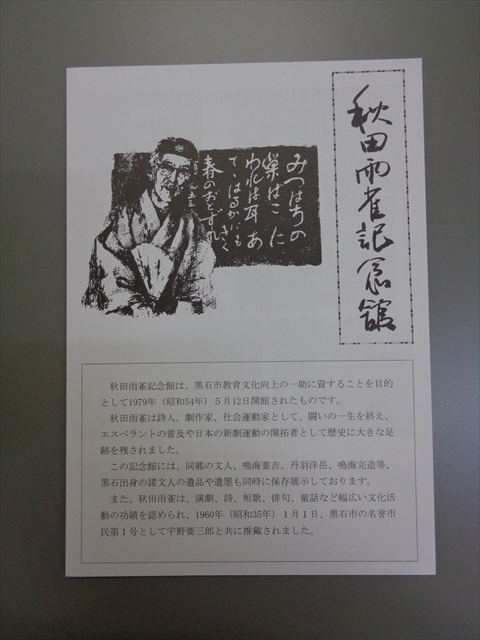 秋田雨雀記念館
みつはちの
巣はこに
われは耳あ
てゝはるかにきく
春のおとずれ
秋田雨雀記念館は、黒石市教育文化向上の一助に資することを目的
として1979年（昭和54年）５月12日開館されたものです。
秋田雨雀は詩人、劇作家、社会運動家として、闘いの一生を終え、
エスペラントの普及や日本の新劇運動の開拓者として歴史に大きな足
跡を残されました。
この記念館には、同郷の文人、鳴海要吉、丹羽洋岳、鳴海完造等、
黒石出身の諸文人の遺品や遺墨も同時に保存展示しております。
また、秋田雨雀は、演劇、詩、短歌、俳句、童話など幅広い文化活
動の功績を認められ、1960年（昭和35年）１月１日、黒石市の名誉市
民第１号として宇野要三郎と共に推戴されました。